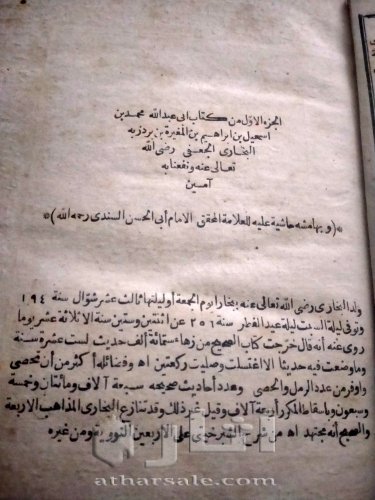 الجزء الاول من كتاب ابى عبدالله محمد بن
اسمعيل بن ابراهيم بن المغيرة بن بردزبه
البخارى الجعفى رضى الله
تعالى عنه ونفعنا به
آمين
﴿وبهامشه حاشية عليه للعلامة المحقق الامام أبى الحسن السندى رحمه الله﴾
ولد البخارى رضى الله تعالى عنه ببخارا يوم الجمعة أو ليلتها ثالث عشر شوال سنة ١٩٤
وتوفى ليلة السبت ليلة عيد الفطر سنة ٢٥٦ عن اثنتين وستين سنة الا ثلاثة عشر يوما
روى عنه أنه قال خرجت كتاب الصحيح من زهاء ستمائة ألف حديث لست عشرة سنة
وما وضعت فيه حديثا الا اغتسلت وصليت ركعتين اه وفضائله أكثر من أن تحصى
وأوفر من عدد الرمل والحصى وعدد أحاديث صحيحه سبعة آلاف ومائتان وخمسة
وسبعون وباسقاط المكرر أربعة آلاف وقيل غير ذلك وقد تنازع البخارى المذاهب الاربعة
والصحيح أنه مجتهد اه من شرح الشبرخيتى على الاربعين النووية ومن غيره
atharsale.com